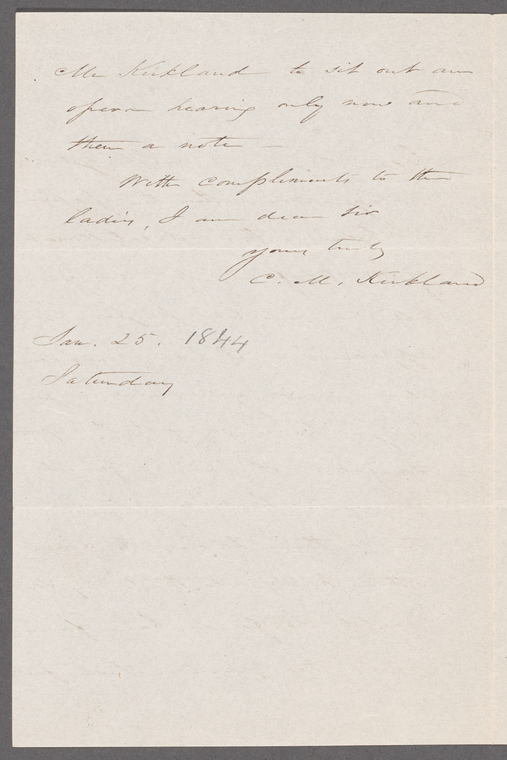 Mr Kirkland to sit out an
opera hearing only now and
then a note –
With compliments to the
ladies, I am dear Sir
yours truly
C. M. Kirkland
Jan. 25. 1844
Saturday